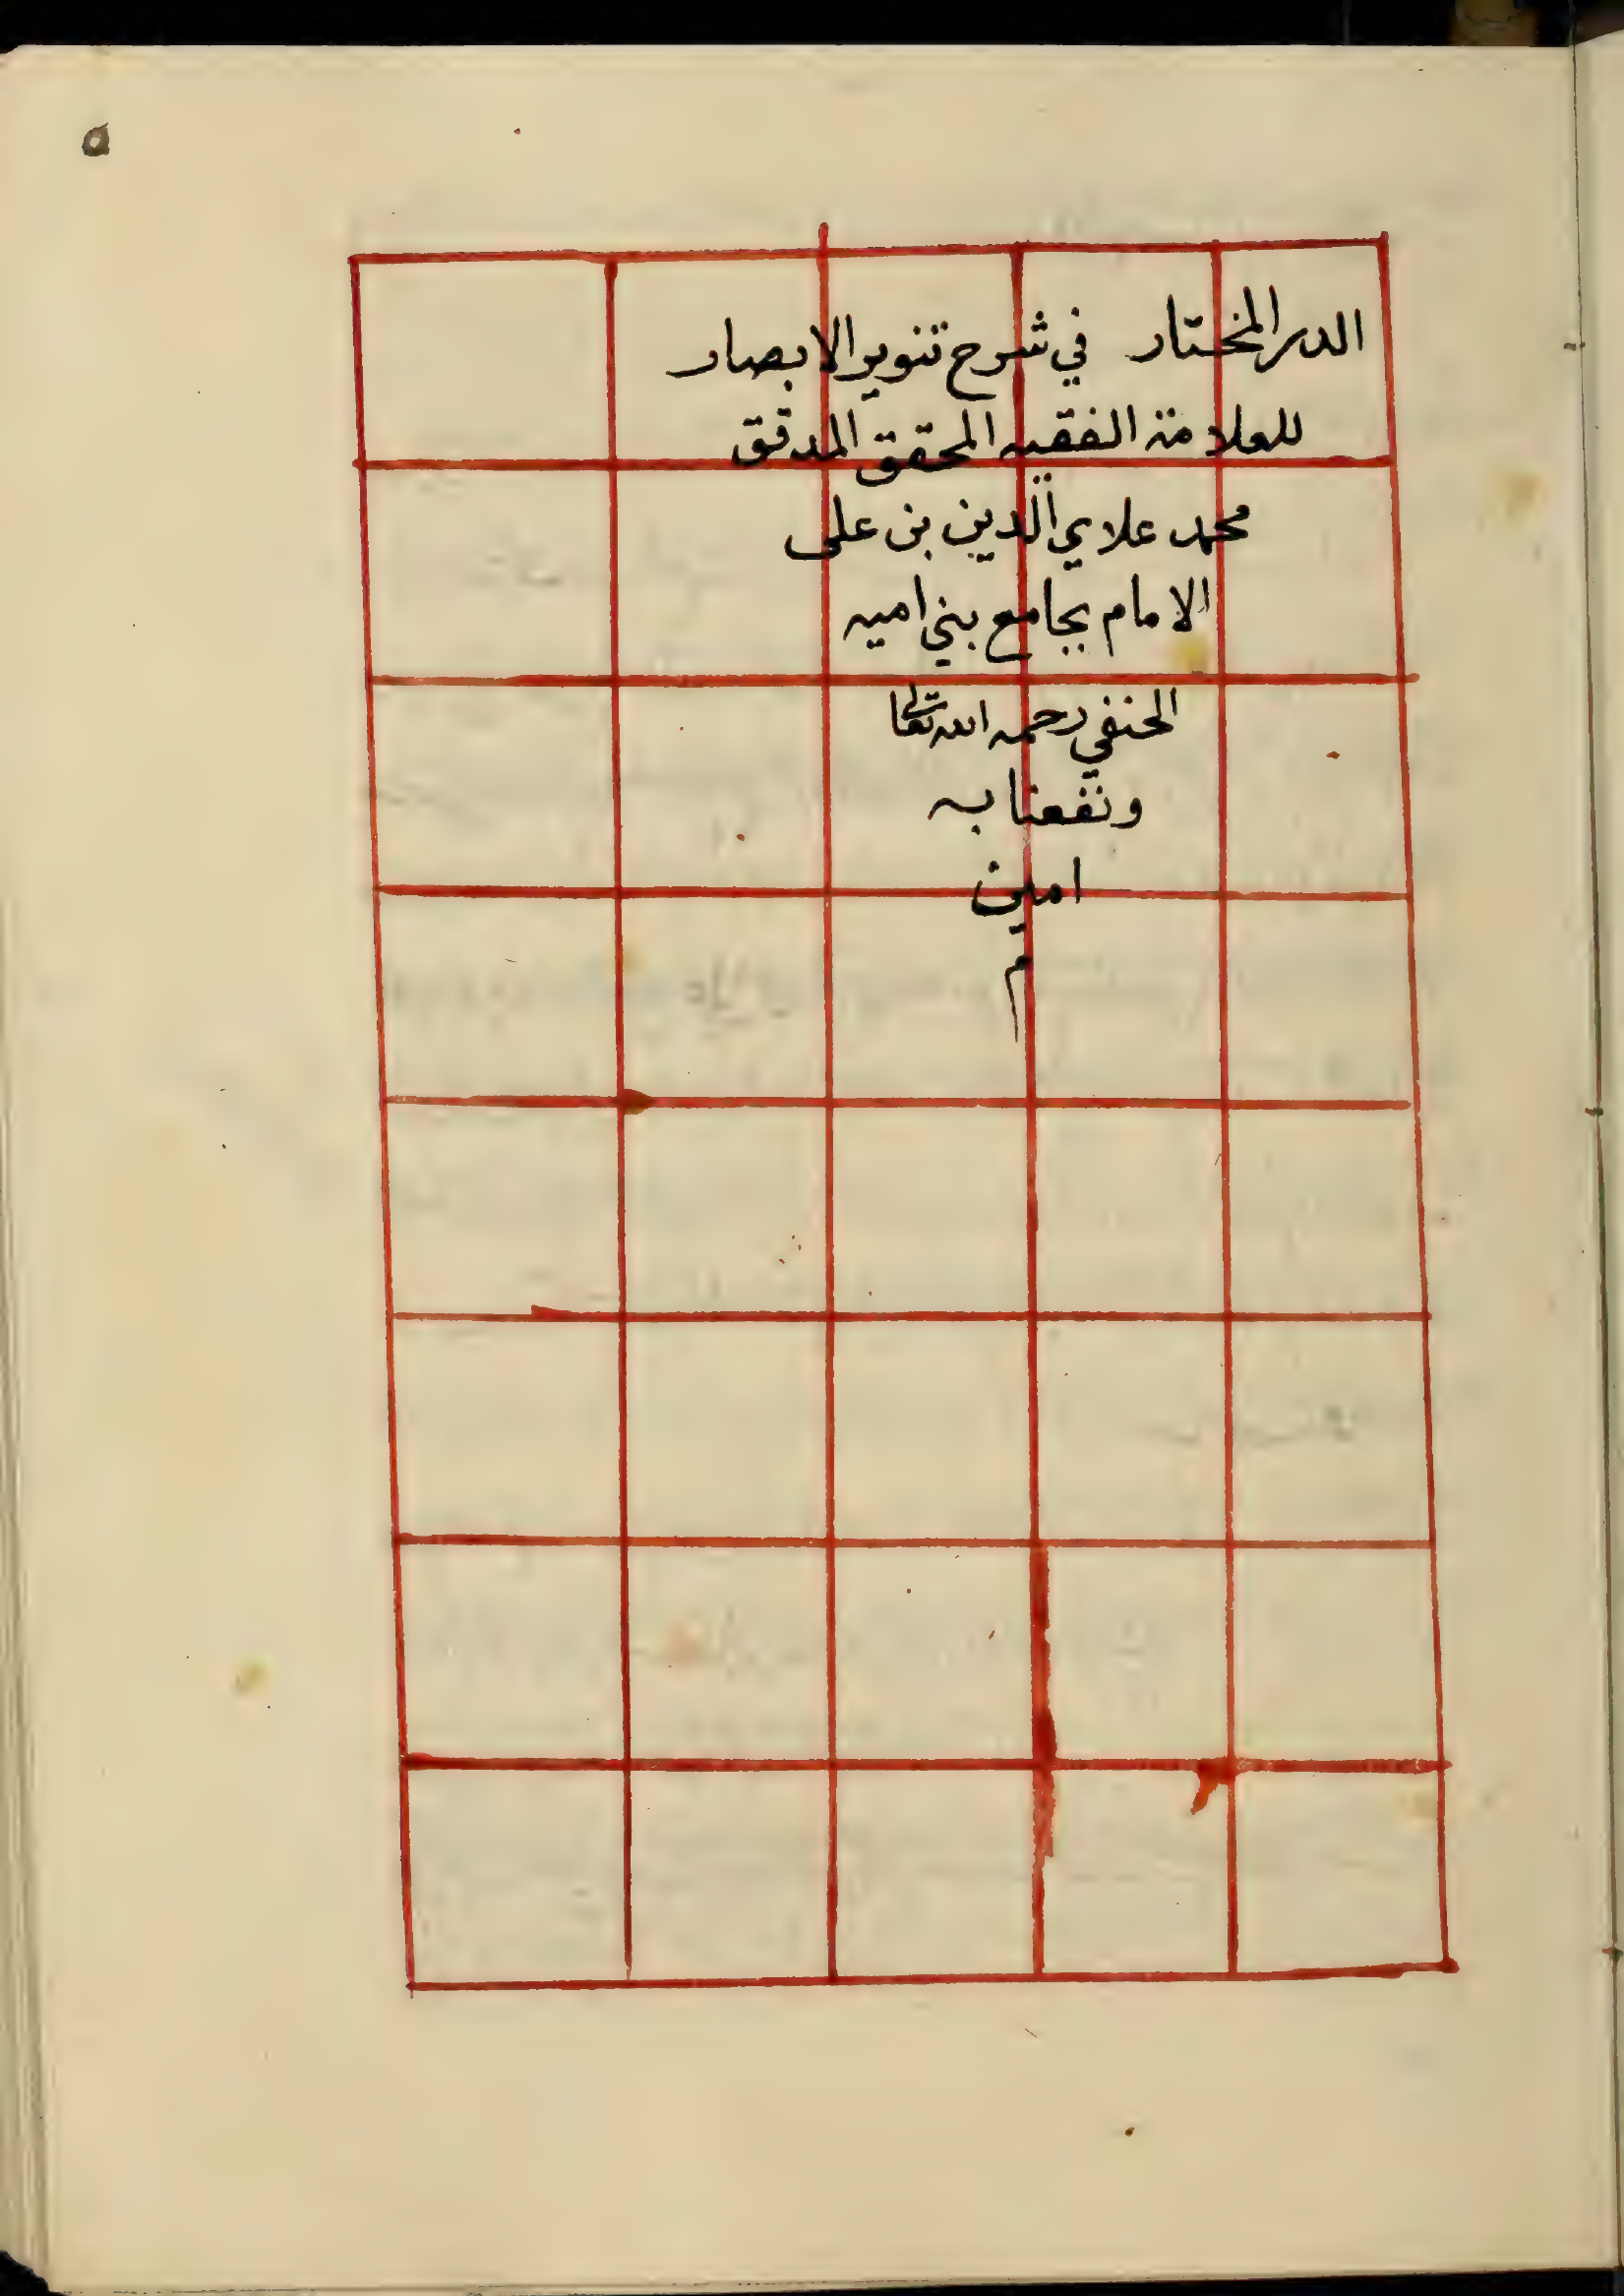 ٥
الدر المختار في شرح تنوير الابصار
للعلامة الفقيه المحقق المدقق
محمد علاي الدين بن علي
الامام بجامع بني اميه
الحنفي رحمه الله تعالى
ونفعنا به
امين
م